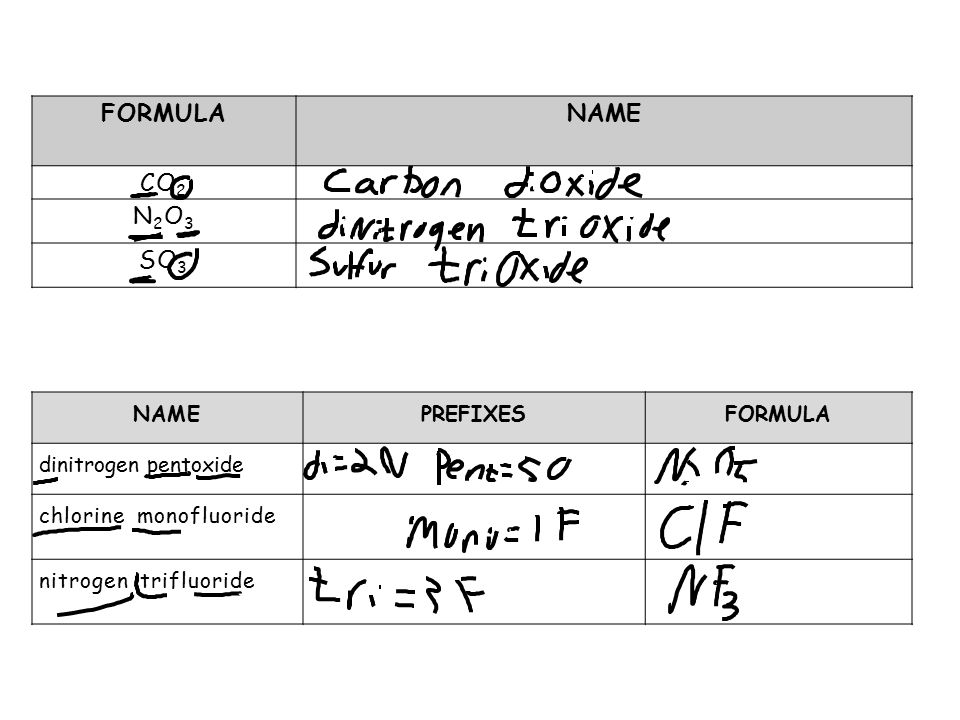 FORMULA NAME
CO₂ Carbon dioxide
N₂O₃ dinitrogen trioxide
SO₃ Sulfur trioxide
NAME PREFIXES FORMULA
dinitrogen pentoxide di=2N Pent=5O
chlorine monofluoride Mono=1F ClF
nitrogen trifluoride tri=3F NF₃